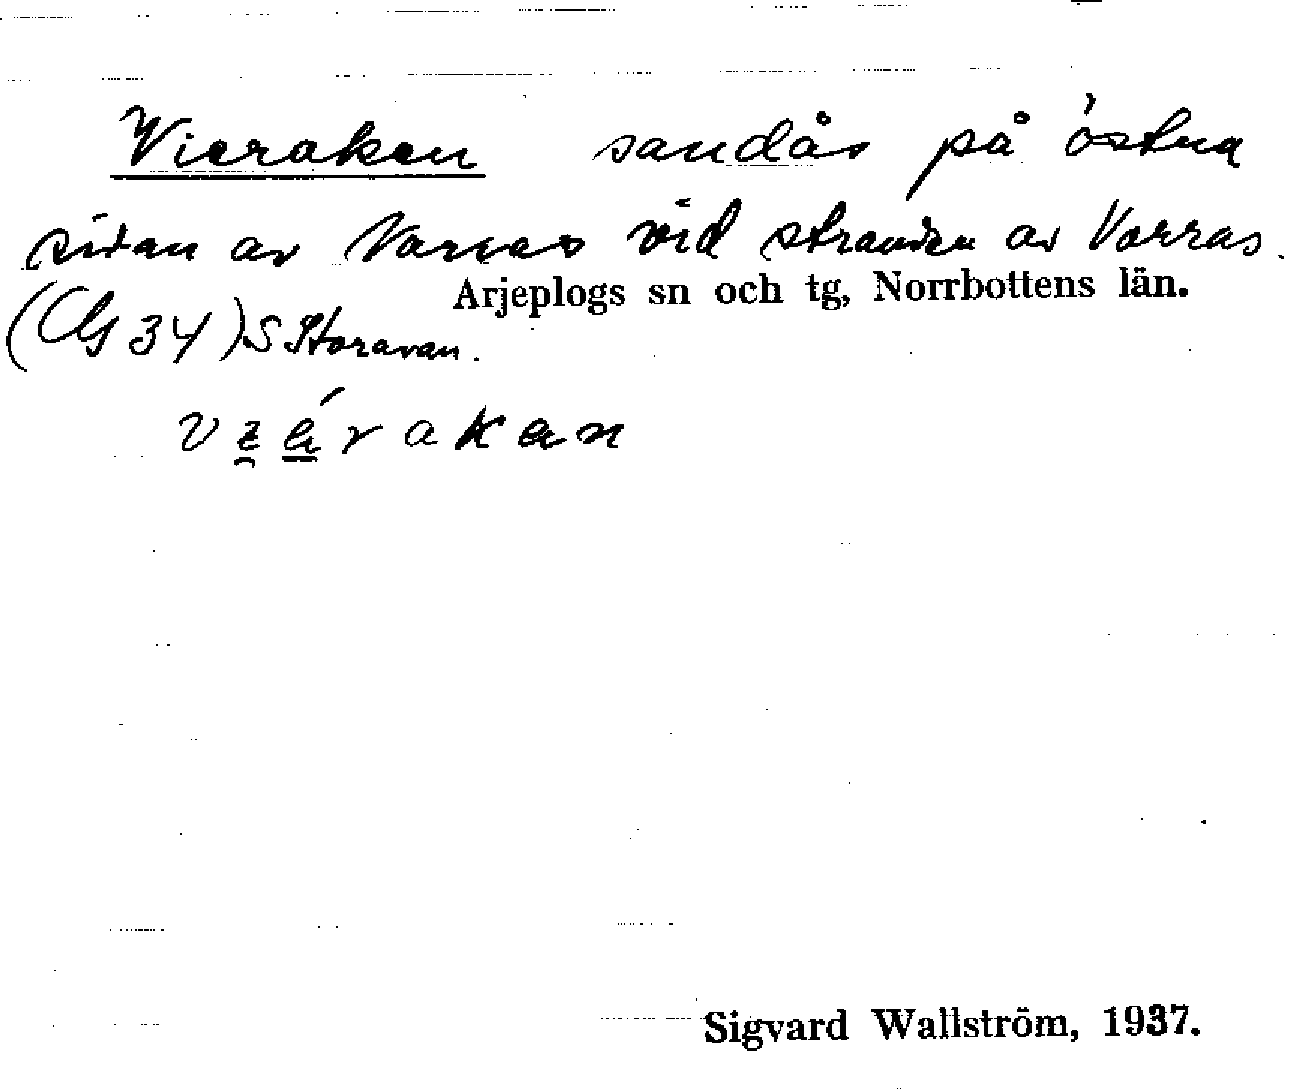 Vieraken sandås på östra
sidan av Varras vid stranden av Varras.
Arjeplogs sn och tg, Norrbottens län.
34) S Storavan.
Sigvard Wallström, 1937.